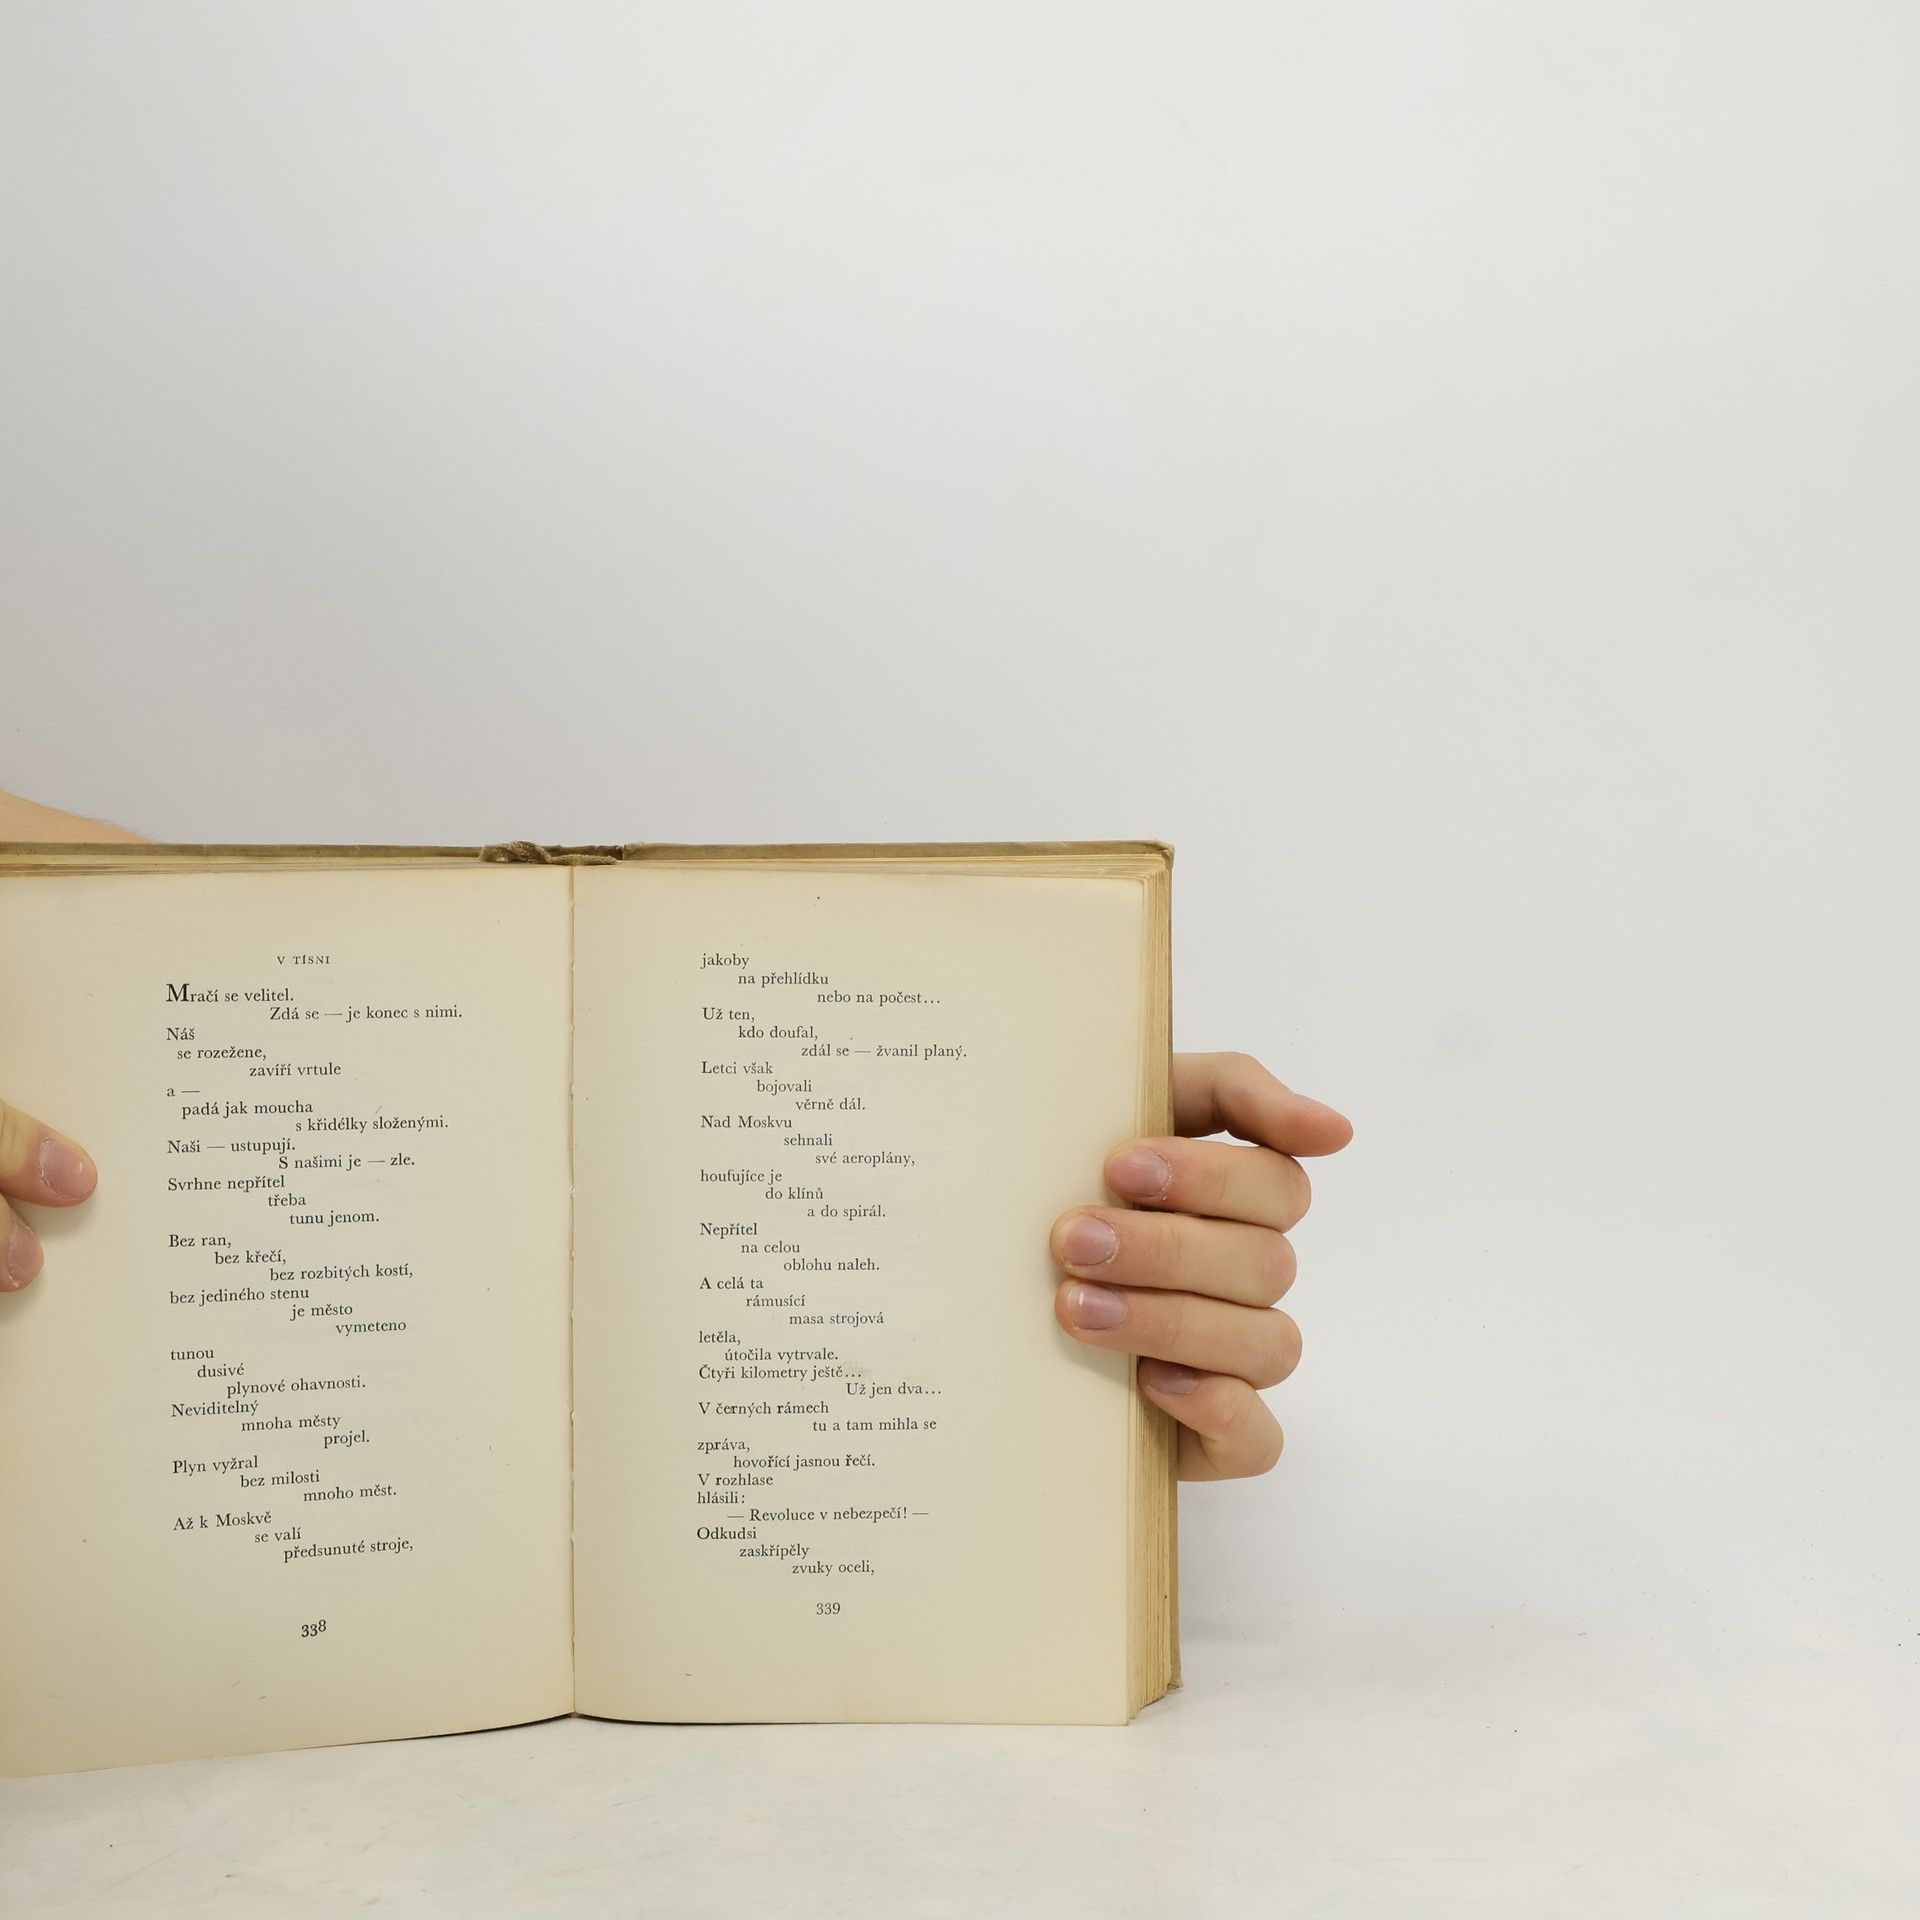 V TÍSNI
Mračí se velitel.
Zdá se — je konec s nimi.
Náš
se rozežene,
zavíří vrtule
a —
padá jak moucha
s křidélky složenými.
Naši — ustupují.
S našimi je — zle.
Svrhne nepřítel
třeba
tunu jenom.
Bez ran,
bez křečí,
bez rozbitých kostí,
bez jediného stenu
je město
vymeteno
tunou
dusivé
plynové ohavnosti.
Neviditelný
mnoha městy
projel.
Plyn vyžral
bez milosti
mnoho měst.
Až k Moskvě
se valí
předsunuté stroje,
338
jakoby
na přehlídku
nebo na počest...
Už ten,
kdo doufal,
zdál se — žvanil planý.
Letci však
bojovali
věrně dál.
Nad Moskvu
sehnali
své aeroplány,
houfujíce je
do klínů
a do spirál.
Nepřítel
na celou
oblohu naleh.
A celá ta
rámusící
masa strojová
letěla,
útočila vytrvale.
Čtyři kilometry ještě...
Už jen dva...
V černých rámech
tu a tam mihla se
zpráva,
hovořící jasnou řečí.
V rozhlase
hlásili:
— Revoluce v nebezpečí! —
Odkudsi
zaskřípěly
zvuky oceli,
339